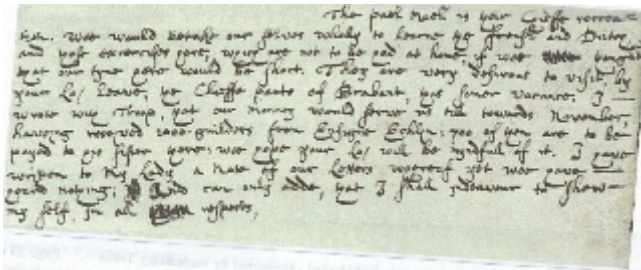 The pall Mall is your Cheiffe recrea-
tion. Wee would betake our selves wholy to learne ye french and Dutch,
and yose exercises here, are not to be had at home, if wee thought
yat our tyme here would be short. They are very desirous to visit, by
your Lo/ Leave, ye Cheiffe parts of Brabant, yis somer vacance. I
wrote Troup, yat our Money would serve us till towards November,
having received 2000 guilders from Ensigne Echlin: 700 of yem are to be
payed to his sister here: wee hope your Lo/ will be myndfull of it. I have
written to My Lady a Note of our Letters whereof yet wee have
heard nothing; And can only adde, yat I shall indevour to shew
my self, in all respects,